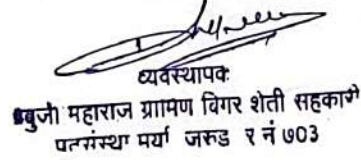 व्यवस्थापक
बुजी महाराज ग्रामिण बिगर शेती सहकारी
पतसंस्था मर्या जरुड र नं ७०३